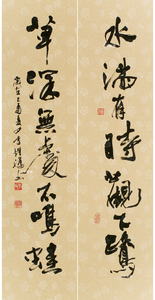 水滿有時觀下鷺
草深無處不鳴蛙